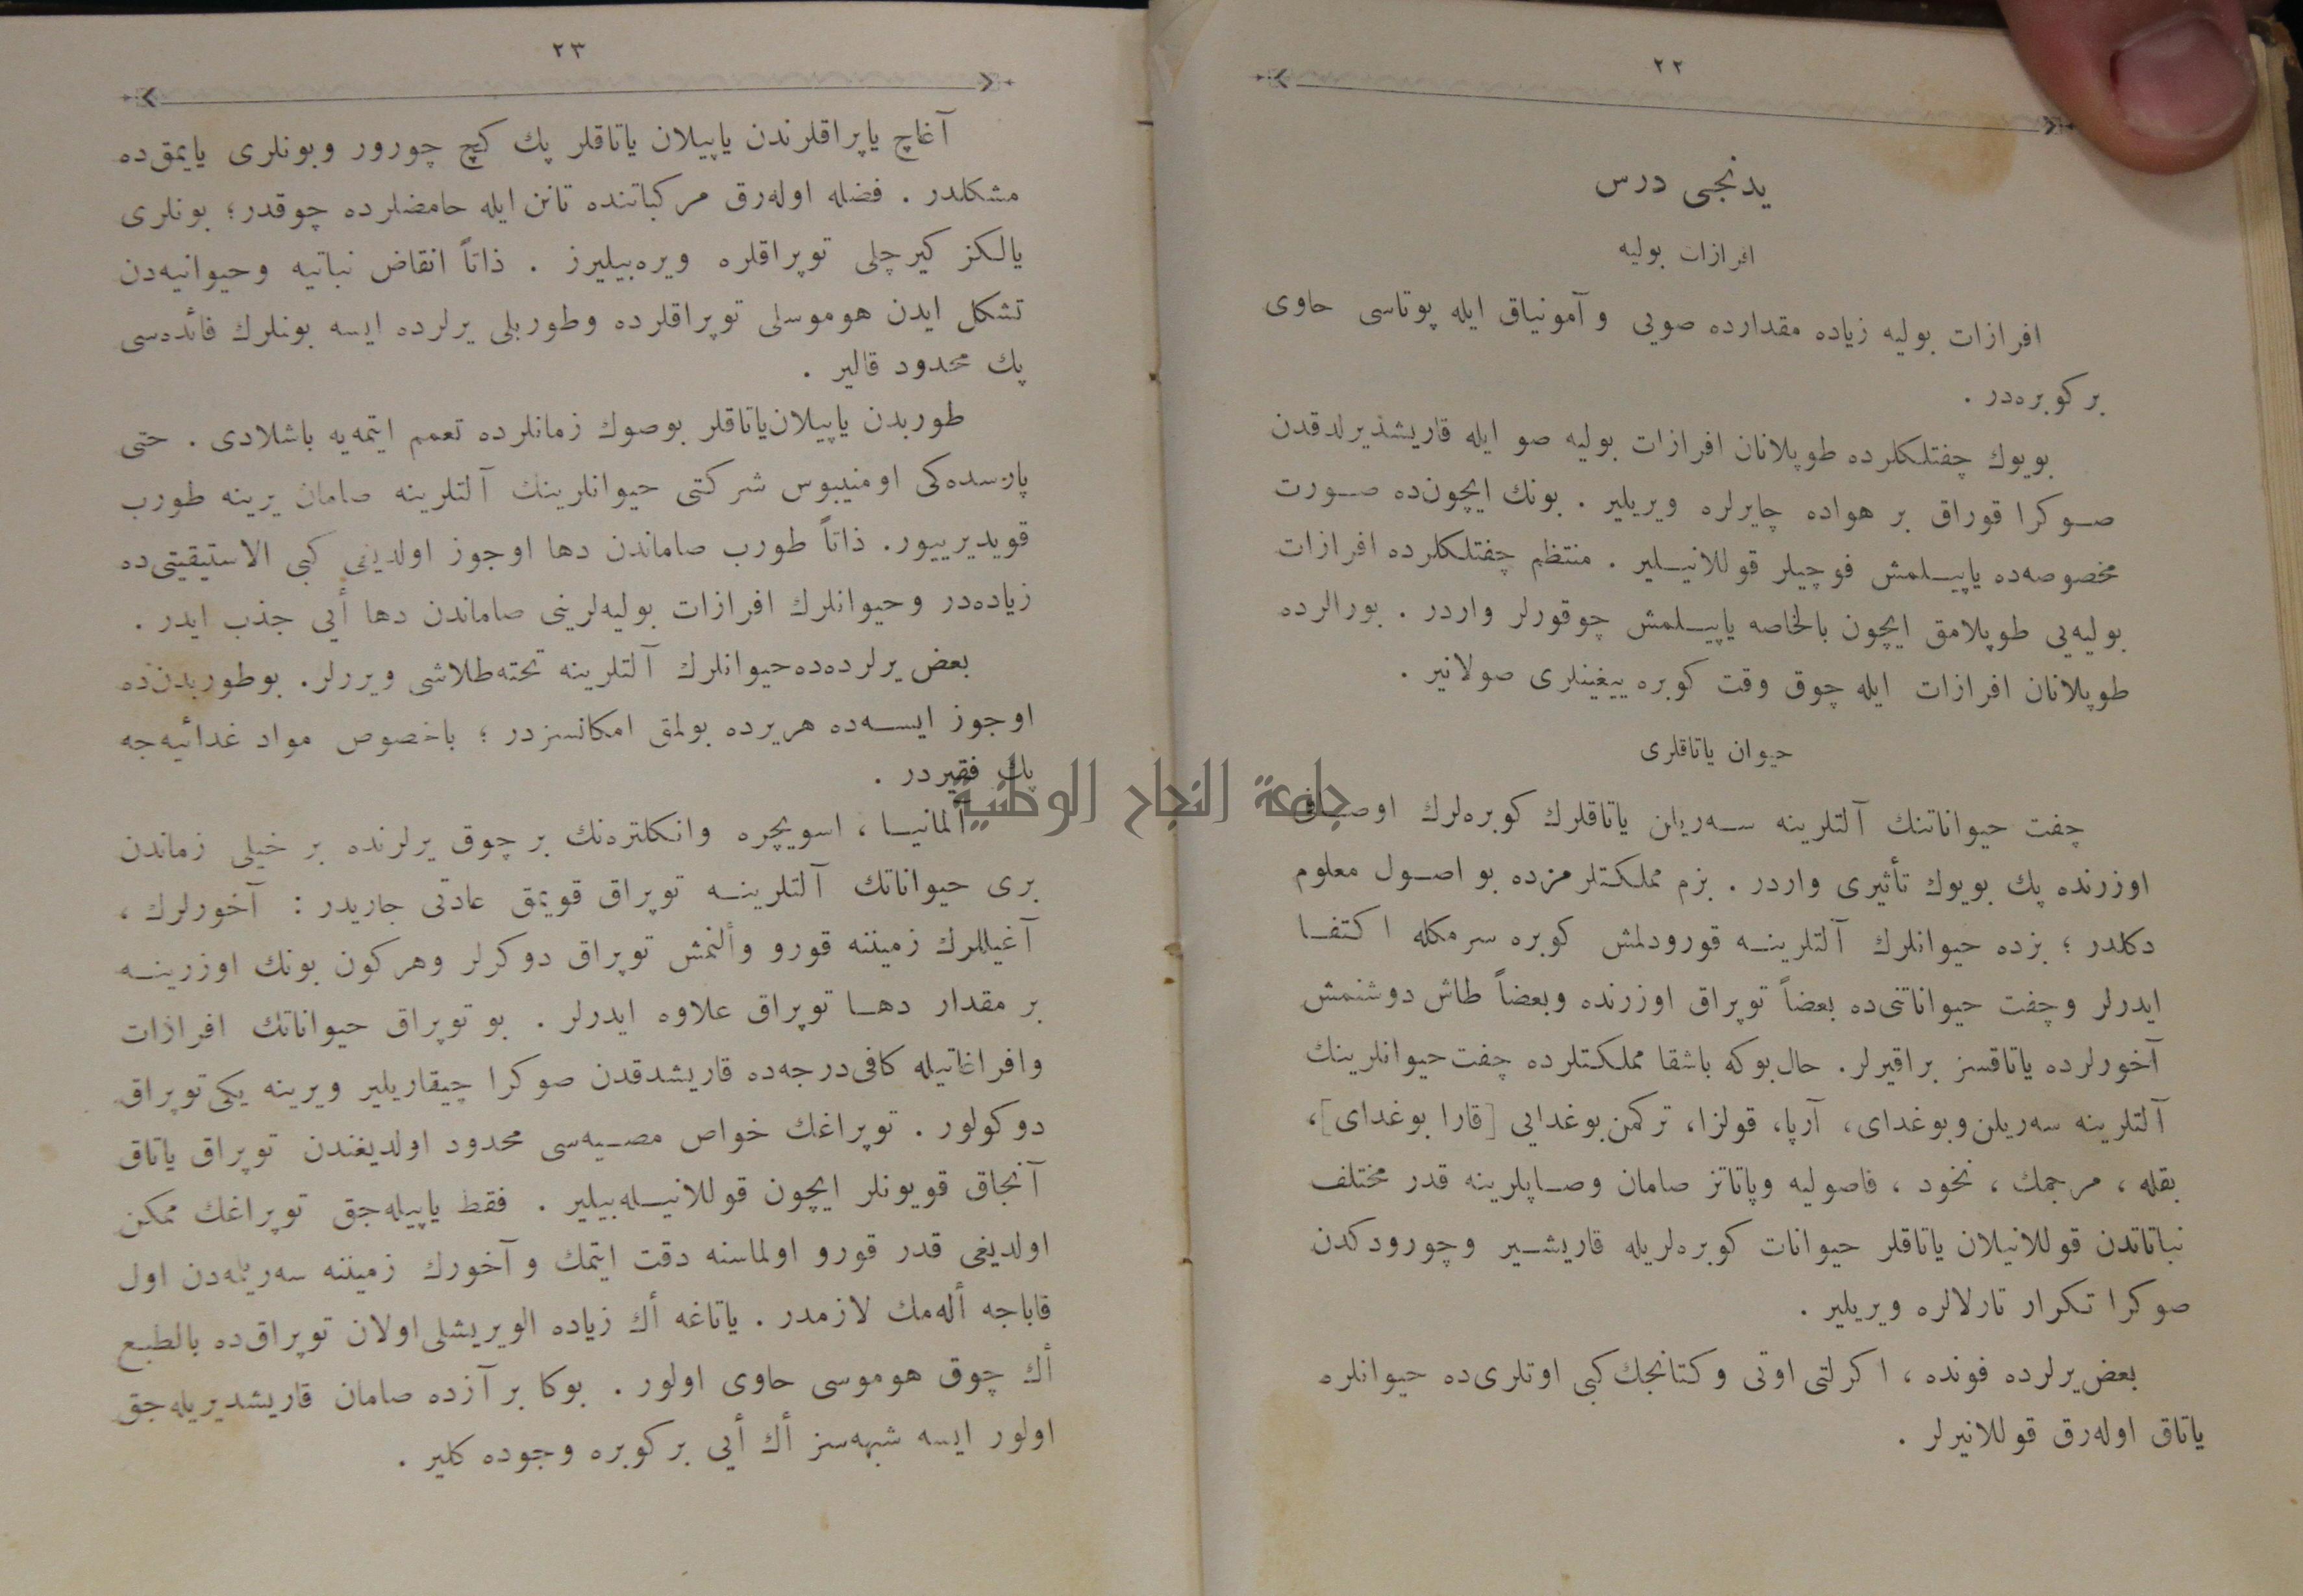 ٢٢
يدنجی درس
افرازات بوليه
افرازات بوليه زياده مقدارده صويی و آمونياق ايله پوتاسی حاوی
بر كوبره‌در .
بويوك چفتلكلرده طوپلانان افرازات بوليه صو ايله قاريشديرلدقدن
صوكرا قوراق بر هواده چايرلره ويريلير . بونك ايچون‌ده صورت
مخصوصه‌ده ياپيلمش فوچيلر قوللانيلير . منتظم چفتلكلرده افرازات
بوليه‌يی طوپلامق ايچون بالخاصه ياپيلمش چوقورلر واردر . بورالرده
طوپلانان افرازات ايله چوق وقت كوبره ييغينلری صولانير .
حيوان ياتاقلری
چفت حيواناتنك آلتلرينه سه‌ريلن ياتاقلرك كوبره‌لرك اوصافی
اوزرنده پك بويوك تأثيری واردر . بزم مملكتلرمزده بو اصول معلوم
دكلدر ؛ بزده حيوانلرك آلتلرينه قورودلمش كوبره سرمكله اكتفا
ايدرلر وچفت حيواناتنی‌ده بعضاً توپراق اوزرنده وبعضاً طاش دوشنمش
آخورلرده ياتاقسز براقيرلر. حال‌بوكه باشقا مملكتلرده چفت حيوانلرينك
آلتلرينه سه‌ريلن وبوغدای، آرپا، قولزا، تركمن بوغدايی [قارا بوغدای]،
بقله ، مرجمك ، نخود ، فاصوليه وپاتاتز صامان وصاپلرينه قدر مختلف
نباتاتدن قوللانيلان ياتاقلر حيوانات كوبره‌لريله قاريشير وچورودكدن
صوكرا تكرار تارلالره ويريلير .
بعض يرلرده فونده ، اكرلتی اوتی وكتانجك كبی اوتلری‌ده حيوانلره
ياتاق اوله‌رق قوللانيرلر .
٢٣
آغاچ ياپراقلرندن ياپيلان ياتاقلر پك كيچ چورور وبونلری يايمق‌ده
مشكلدر . فضله اوله‌رق مركباتنده تانن ايله حامضلرده چوقدر؛ بونلری
يالكز كيرچلی توپراقلره ويره‌بيليرز . ذاتاً انقاض نباتيه وحيوانيه‌دن
تشكل ايدن هوموسلی توپراقلرده وطوربلی يرلرده ايسه بونلرك فائده‌سی
پك محدود قالير .
طوربدن ياپيلان ياتاقلر بوصوك زمانلرده تعمم ايتمه‌يه باشلادی . حتی
پارسده‌كی اومنيبوس شركتی حيوانلرينك آلتلرينه صامان يرينه طورب
قويديرييور. ذاتاً طورب صاماندن دها اوجوز اولديغی كبی الاستيقيتی‌ده
زياده‌در وحيوانلرك افرازات بوليه‌لرينی صاماندن دها أيی جذب ايدر .
بعض يرلرده‌ده حيوانلرك آلتلرينه تخته طلاشی ويررلر. بوطوربدن‌ده
اوجوز ايسه‌ده هريرده بولمق امكانسزدر ؛ باخصوص مواد غدائيه‌جه
پك فقيردر .
آلمانيا ، اسويچره وانكلتره‌نك بر چوق يرلرنده بر خيلی زماندن
بری حيواناتك آلتلرينه توپراق قويمق عادتی جاريدر : آخورلرك ،
آغيللرك زميننه قورو وألنمش توپراق دوكرلر وهركون بونك اوزرينه
بر مقدار دها توپراق علاوه ايدرلر . بو توپراق حيواناتك افرازات
وافراغاتيله كافی درجه‌ده قاريشدقدن صوكرا چيقاريلير ويرينه يكی توپراق
دوكولور . توپراغك خواص مصيه‌سی محدود اولديغندن توپراق ياتاق
آنجاق قويونلر ايچون قوللانيله‌بيلير . فقط ياپيله‌جق توپراغك ممكن
اولديغی قدر قورو اولماسنه دقت ايتمك و آخورك زميننه سه‌ريلمه‌دن اول
قاباجه أله‌مك لازمدر . ياتاغه أك زياده الويريشلی اولان توپراق‌ده بالطبع
أك چوق هوموسی حاوی اولور . بوكا بر آزده صامان قاريشديريله‌جق
اولور ايسه شبهه‌سز أك أيی بر كوبره وجوده كلير .
جامعة النجاح الوطنية